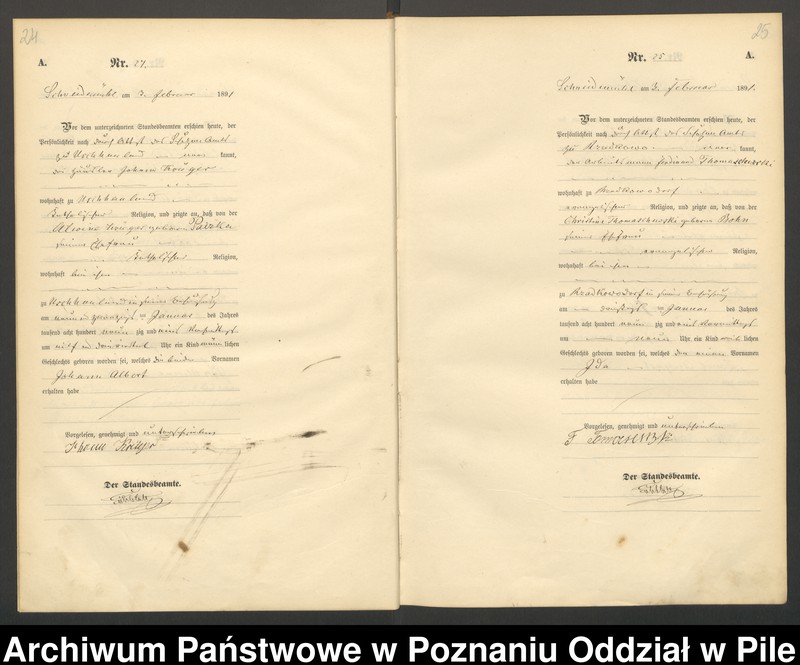 24
A.
Nr.
Schneidemühl am 3. Februar 1891.
Vor dem unterzeichneten Standesbeamten erschien heute, der
Persönlichkeit nach durch Attest des Schulzen Amts
zu Usch Hauland kannt,
der Häusler Johann Krüger
wohnhaft zu Usch Hauland
katholischer Religion, und zeigte an, daß von der
Krüger geborene
seiner Ehefrau
katholischer Religion,
wohnhaft bei ihm
zu Usch Hauland in seiner Behausung
am neun und zwanzigsten Januar des Jahres
tausend acht hundert neunzig und eins
um Uhr ein Kind männlichen
Geschlechts geboren worden sei, welches die beiden Vornamen
Johann Albert
erhalten habe
Vorgelesen, genehmigt und unterschrieben
Der Standesbeamte.
25
Nr. 25
A.
Schneidemühl am 3. Februar 1891.
Vor dem unterzeichneten Standesbeamten erschien heute, der
Persönlichkeit nach durch Attest des Schulzen Amts
zu kannt,
der Arbeitsmann Ferdinand
wohnhaft zu
evangelischer Religion, und zeigte an, daß von der
Christine Thomaschewski geborene Bohn
seiner Ehefrau
evangelischer Religion,
wohnhaft bei ihm
zu in seiner Behausung
am dreißigsten Januar des Jahres
tausend acht hundert neunzig und eins Vormittags
um neun Uhr ein Kind weiblichen
Geschlechts geboren worden sei, welches den einen Vornamen
Ida
erhalten habe
Vorgelesen, genehmigt und unterschrieben
Der Standesbeamte.
Archiwum Państwowe w Poznaniu Oddział w Pile